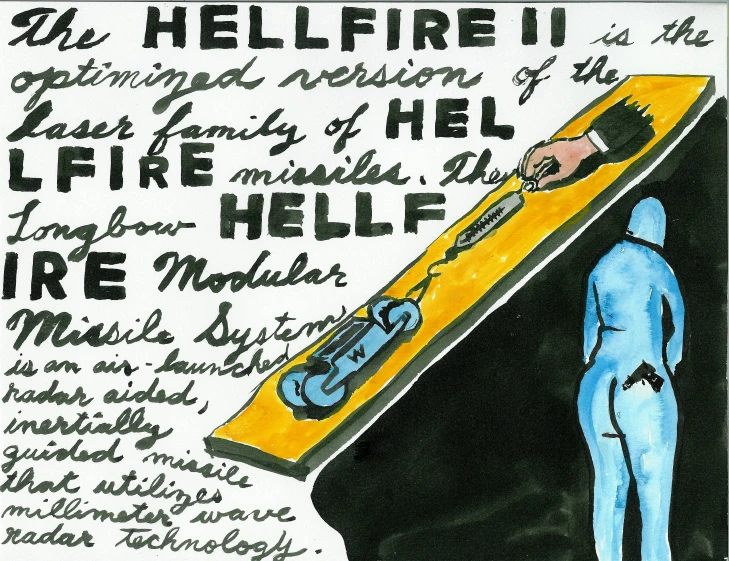 The HELLFIRE II is the
optimized version of the
laser family of HEL
LFIRE missiles. The
Longbow HELLF
IRE Modular
Missile System
is an air-launched
radar aided,
inertially
guided missile
that utilizes
millimeter wave
radar technology.
W